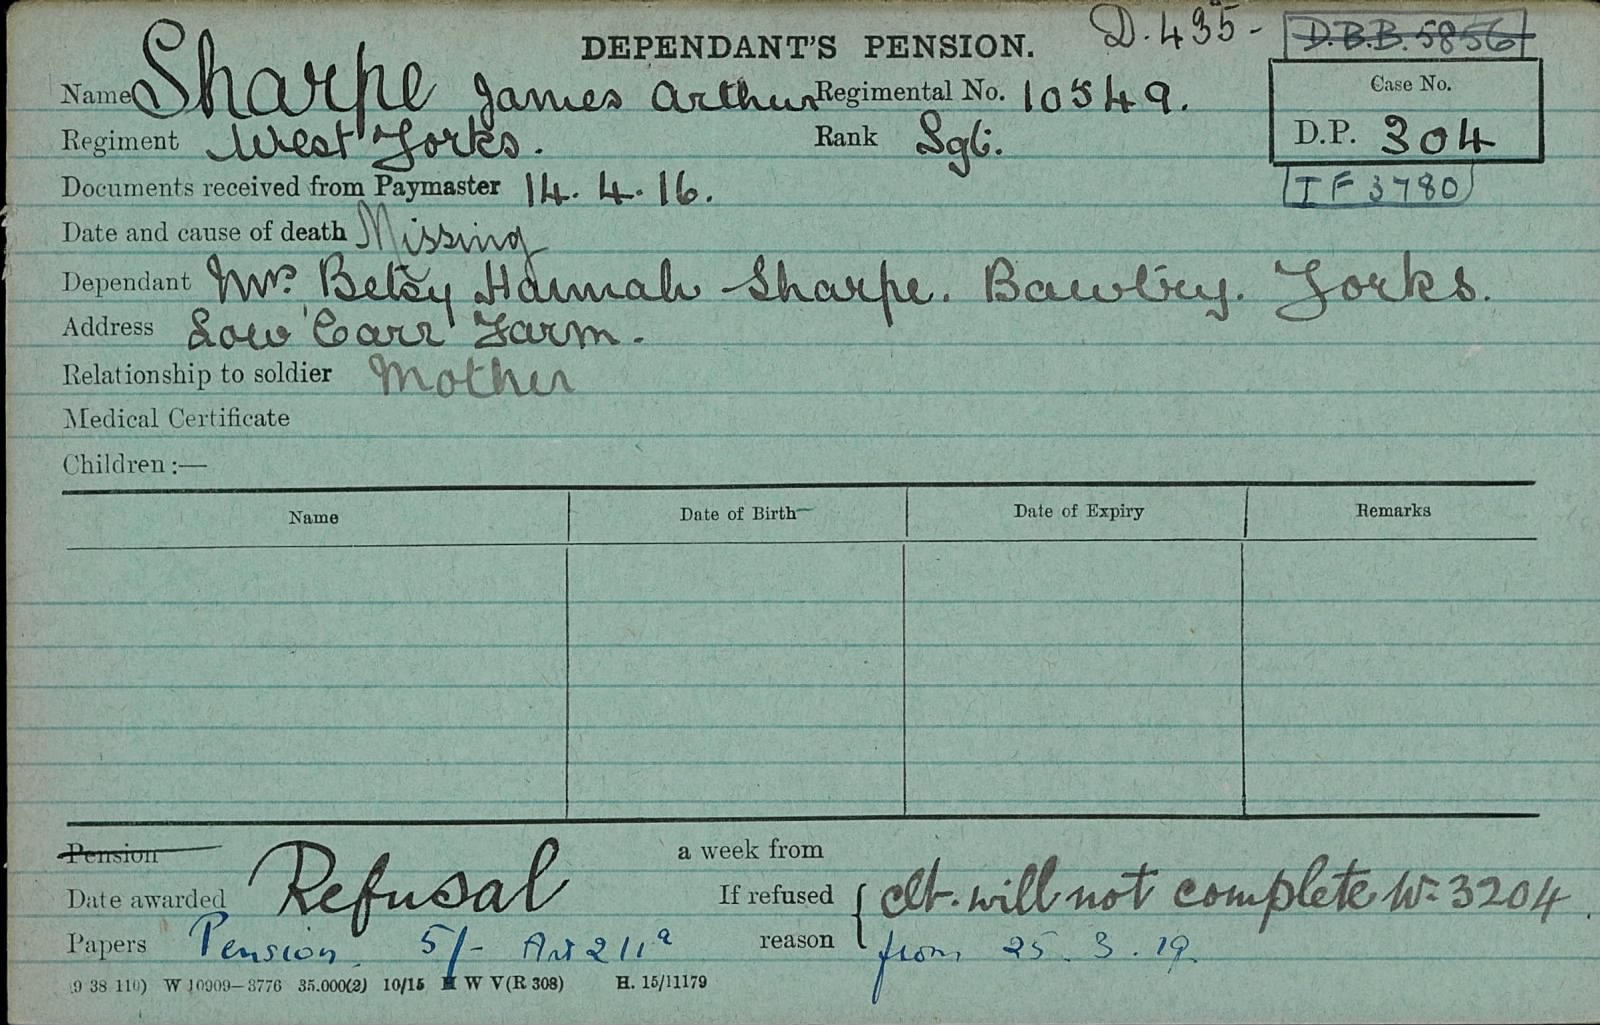 DEPENDANT'S PENSION. D. 435- D.B.B. 5856
Name Sharpe James Arthur Regimental No. 10549. Case No.
Regiment West Yorks. Rank Sgt. D.P. 304
Documents received from Paymaster 14. 4. 16. IF 3780
Date and cause of death Missing
Dependant Mrs. Betsy Hannah Sharpe. Bawtry. Yorks.
Address Low Carr Farm.
Relationship to soldier Mother
Medical Certificate
Children :—
Name Date of Birth Date of Expiry Remarks
Pension a week from
Date awarded Refusal If refused { clt. will not complete W-3204.
Papers Pension. 5/- Art 21 1a reason from 25. 3. 19.
(9 38 110) W 10909—3776 35,000(2) 10/15 H W V(R 308) H. 15/11179